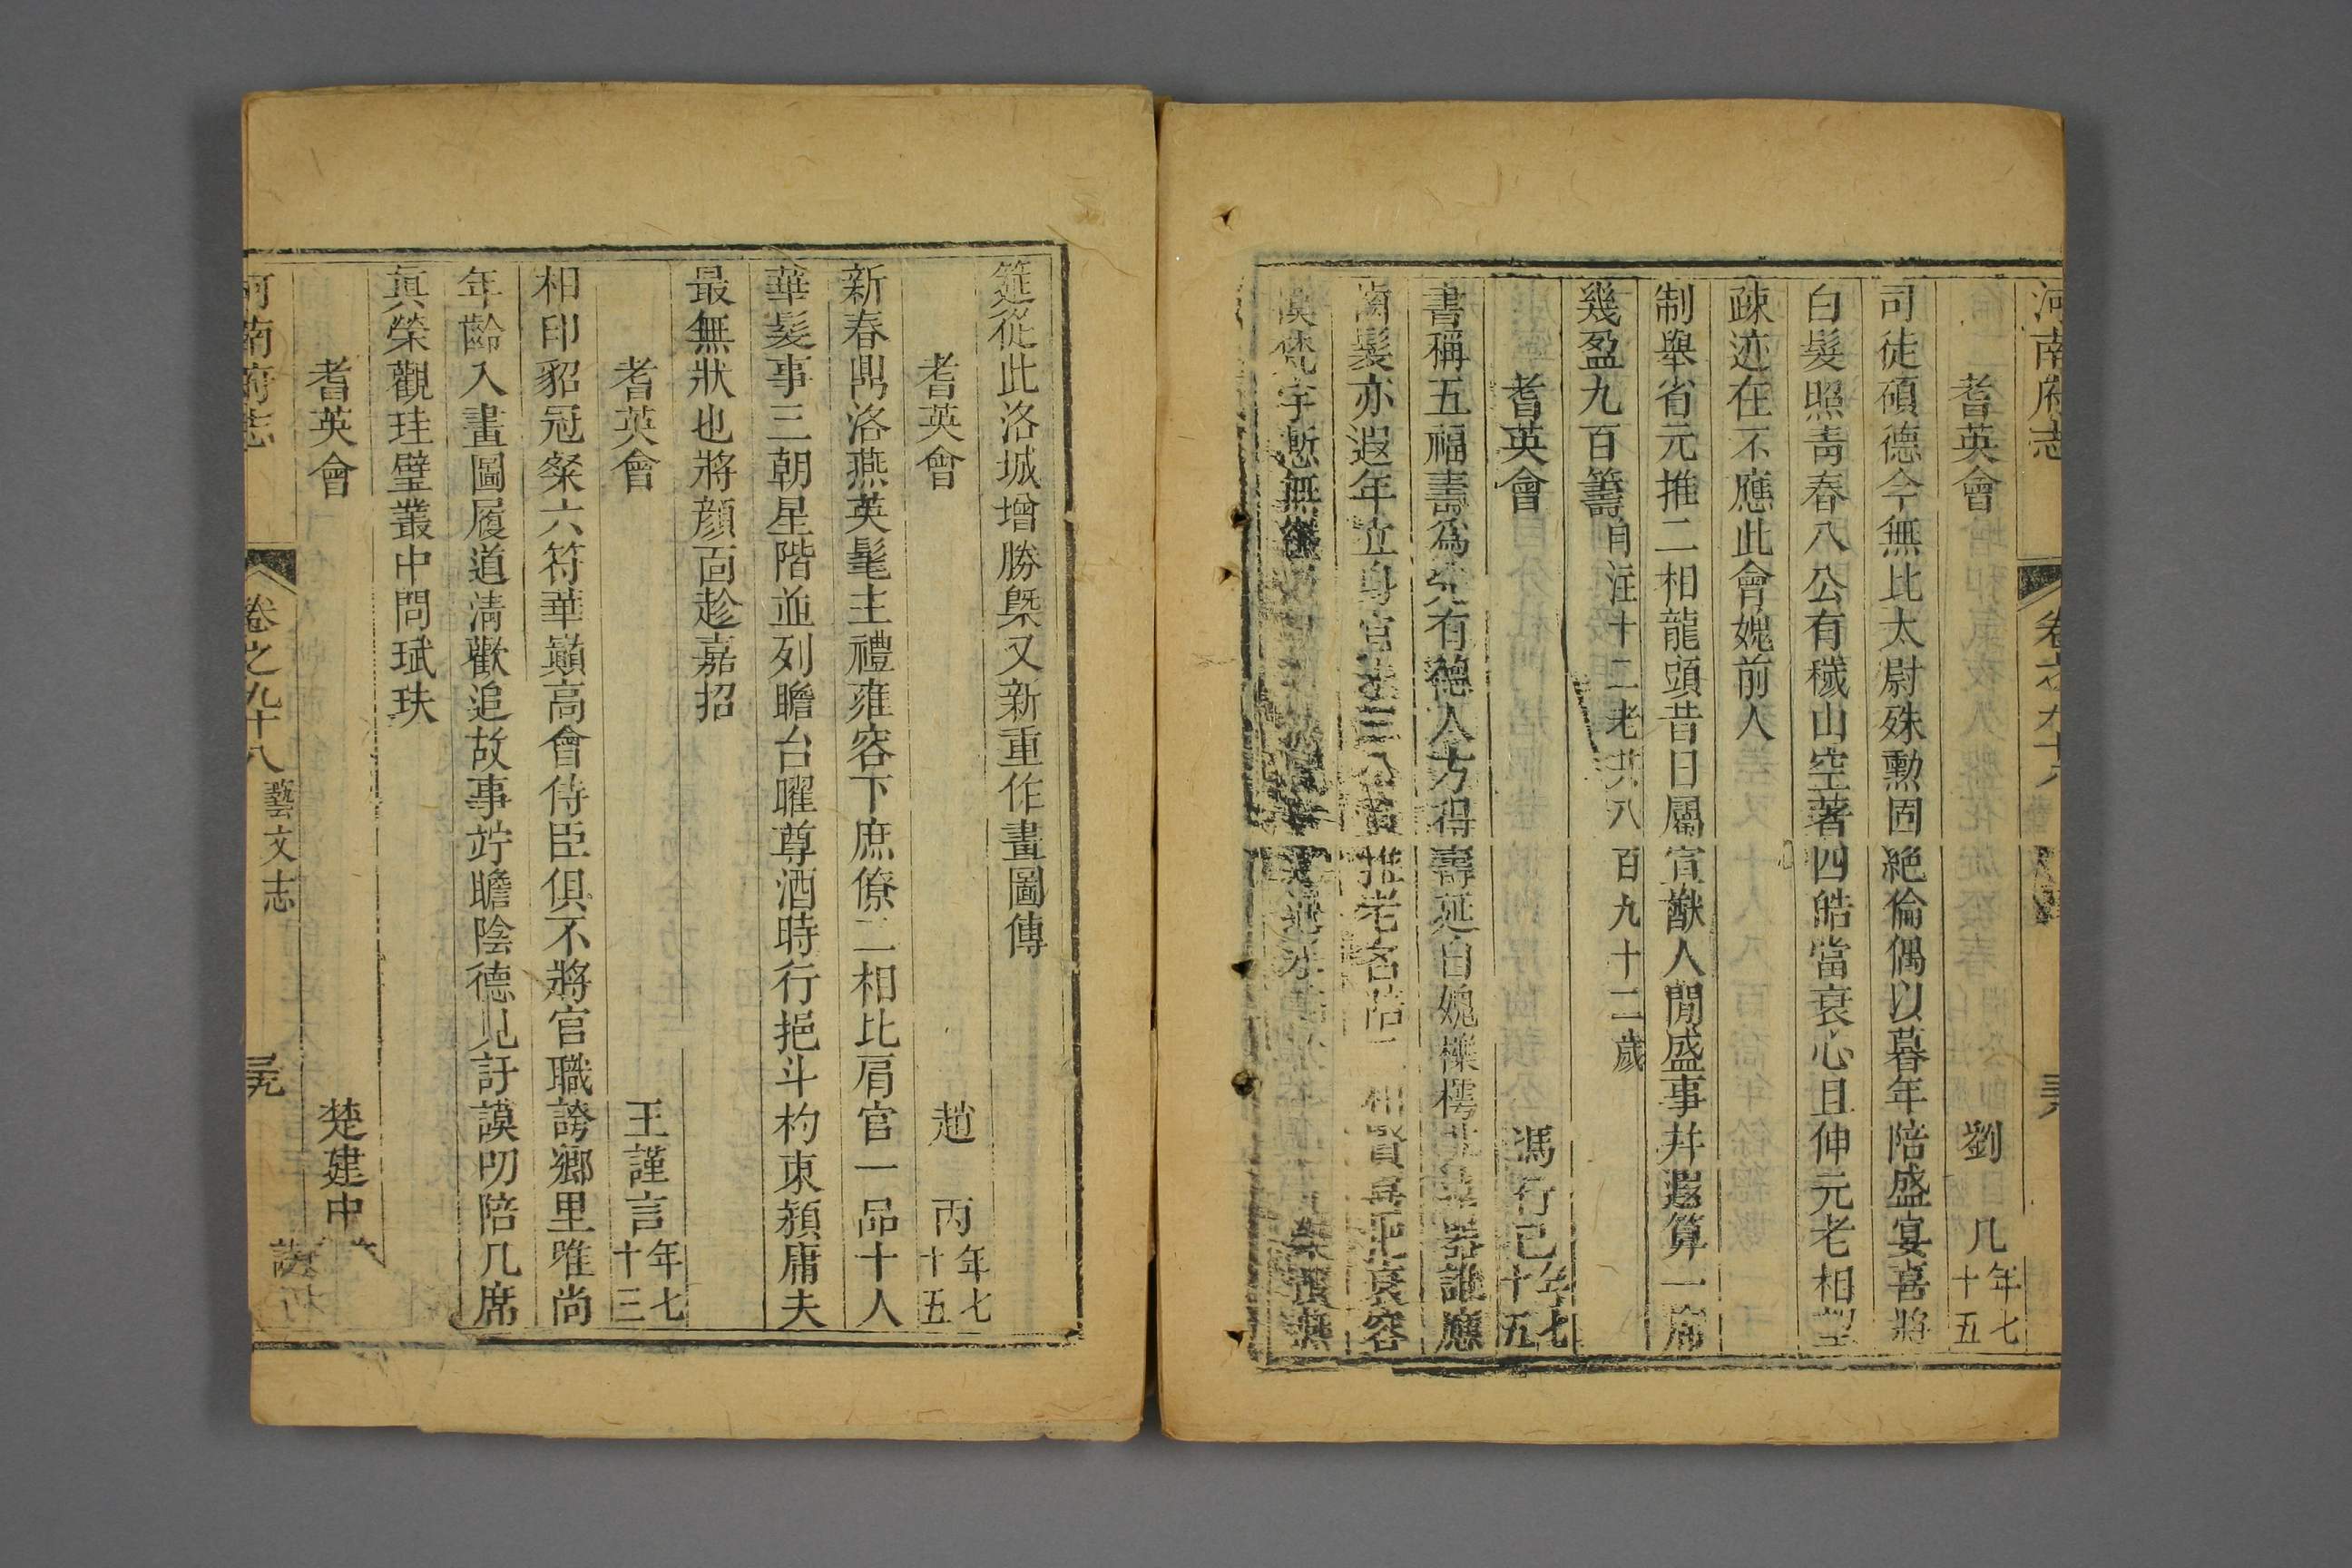 河南府志
卷之九十八
耆英會 劉几年七十五
司徒碩德今無比太尉殊勳固絶倫偶以暮年陪盛宴喜將
白髮照青春八公有穢山空著四皓當衰心且伸元老相望
疎迹在不應此會媿前人
制舉省元推二相龍頭昔日屬宣猷人間盛事幷遐算一席
幾盈九百籌自注十二老共八百九十二歲
耆英會 馮行已年七十五
書稱五福壽為先有德人方得壽延自媿櫟樗 器誰應
髮亦遐年 身官 推老 陪二相賢 衰容
宇慙無
筵從此洛城增勝槩又新重作畫圖傳
耆英會 趙丙年七十五
新春鼎洛燕英髦主禮雍容下庶僚二相比肩官一品十人
華髮事三朝星階並列瞻台曜尊酒時行挹斗杓衷頽庸夫
最無狀也將顔面趁嘉招
耆英會 王謹言年七十三
相印貂冠粲六符華巔高會侍臣俱不將官職誇鄉里唯尚
年齡入畫圖履道淸歡追故事竚瞻陰德見訏謨叨陪几席
眞榮觀珪璧叢中問珷玞
耆英會 楚建中
河南府志 卷之九十八 藝文志